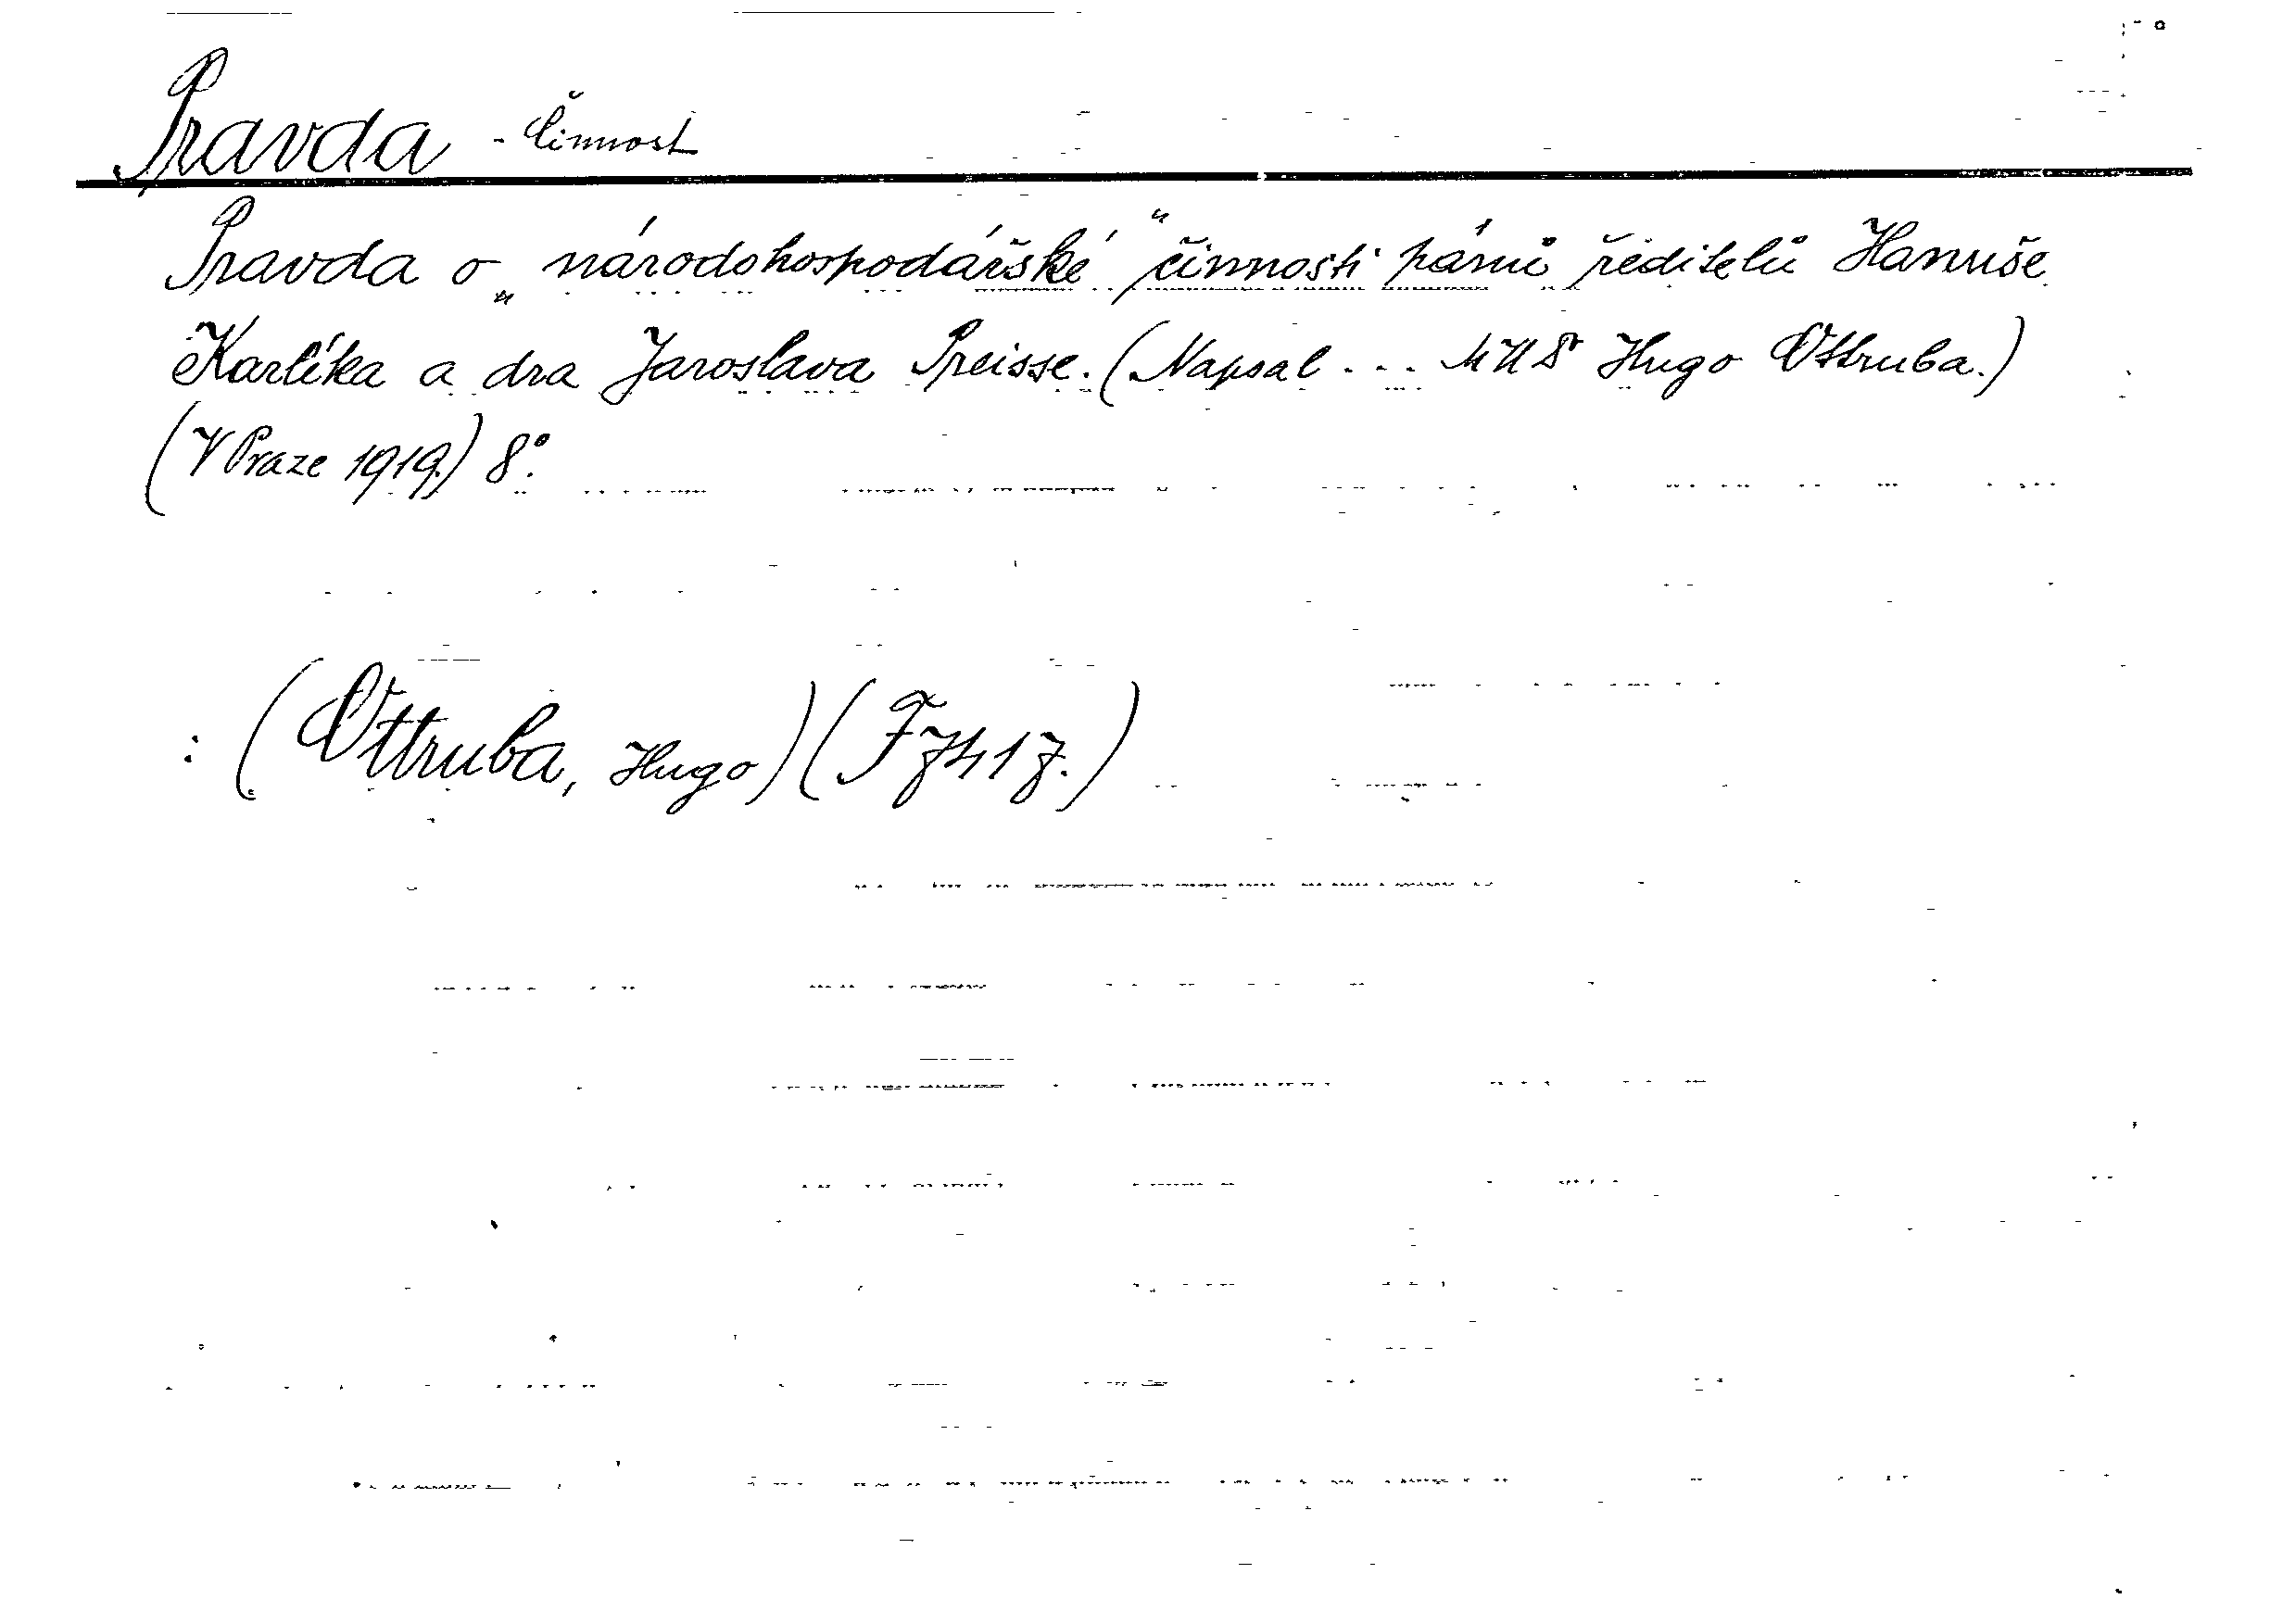 Pravda - Činnost
Pravda o „národohospodářské“ činnosti pánů ředitelů Hanuše
Karlíka a dra Jaroslava Preisse. (Napsal ... MUDr Hugo Vttruba.)
(V Praze 1919.) 8°.
: (Vttruba, Hugo) (F 7417.)